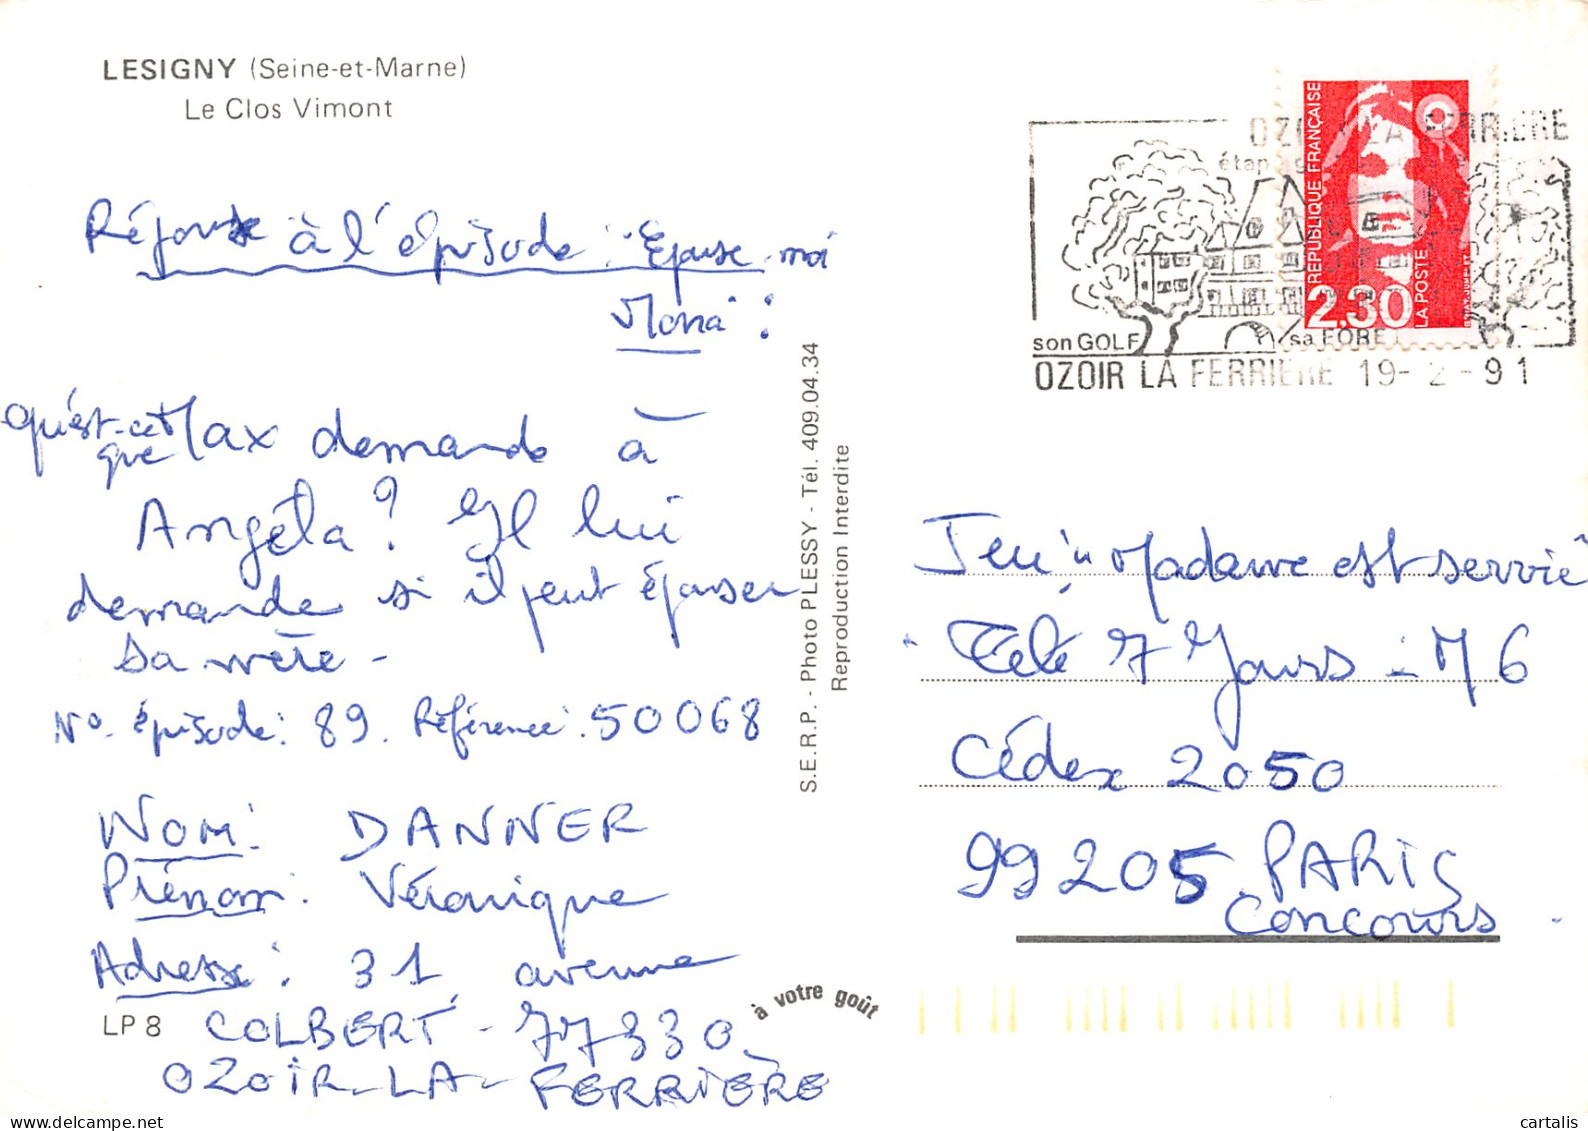 LESIGNY (Seine-et-Marne)
Le Clos Vimont
Réponse à l'épisode : "Epouse-moi
Mona" :
Qu'est-ce
que Max demande à
Angéla? Il lui
demande si il peut épouser
sa mère -
N° épisode : 89. Référence : 50068
Nom : DANNER
Prénom : Véronique
Adresse : 31, avenue
COLBERT - 77330
OZOIR-LA-FERRIÈRE
LP 8
S.E.R.P. - Photo PLESSY - Tél. 409.04.34
Reproduction Interdite
à votre goût
OZOIR LA FERRIERE
son GOLF
sa FORET
OZOIR LA FERRIERE 19-2-91
REPUBLIQUE FRANÇAISE
2,30
LA POSTE
Jeu "Madame est servie"
Télé 7 Jours - M6
Cédex 2050
99205 PARIS
Concours
www.delcampe.net
cartalis